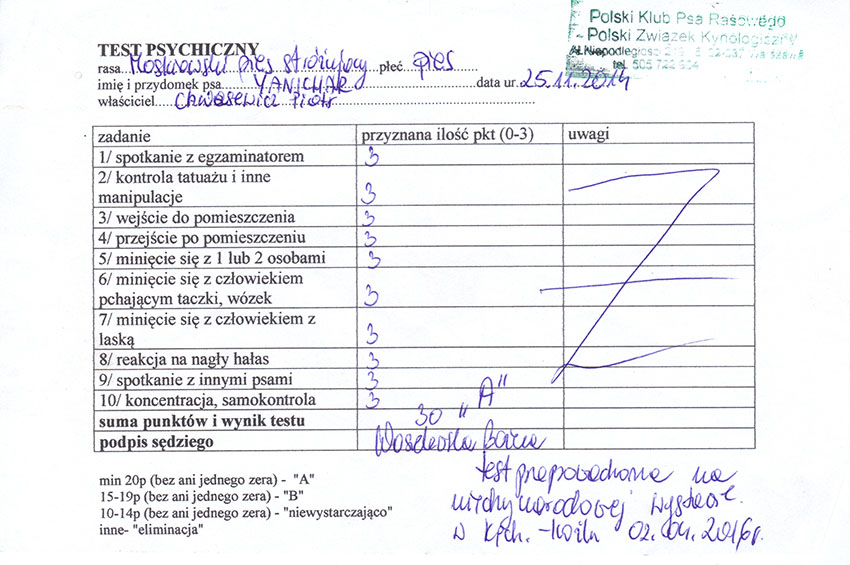 Polski Klub Psa Rasowego
- Polski Związek Kynologiczny
Al. Niepodległości
tel. 505 722 904
TEST PSYCHICZNY
rasa Moskiewski pies stróżujący płeć pies
imię i przydomek psa. YANICHAR data ur. 25.11.2014
właściciel Chwasewicz Piotr
zadanie przyznana ilość pkt (0-3) uwagi
1/ spotkanie z egzaminatorem 3
2/ kontrola tatuażu i inne
manipulacje 3
3/ wejście do pomieszczenia 3
4/ przejście po pomieszczeniu 3
5/ minięcie się z 1 lub 2 osobami 3
6/ minięcie się z człowiekiem
pchającym taczki, wózek 3
7/ minięcie się z człowiekiem z
laską 3
8/ reakcja na nagły hałas 3
9/ spotkanie z innymi psami 3
10/ koncentracja, samokontrola 3
suma punktów i wynik testu 30 „A"
podpis sędziego
min 20p (bez ani jednego zera) - "A"
15-19p (bez ani jednego zera) - "B"
10-14p (bez ani jednego zera) - "niewystarczająco"
inne- "eliminacja"
test przeprowadzona na
międzynarodowej wystawie
w 02.04.2016r.